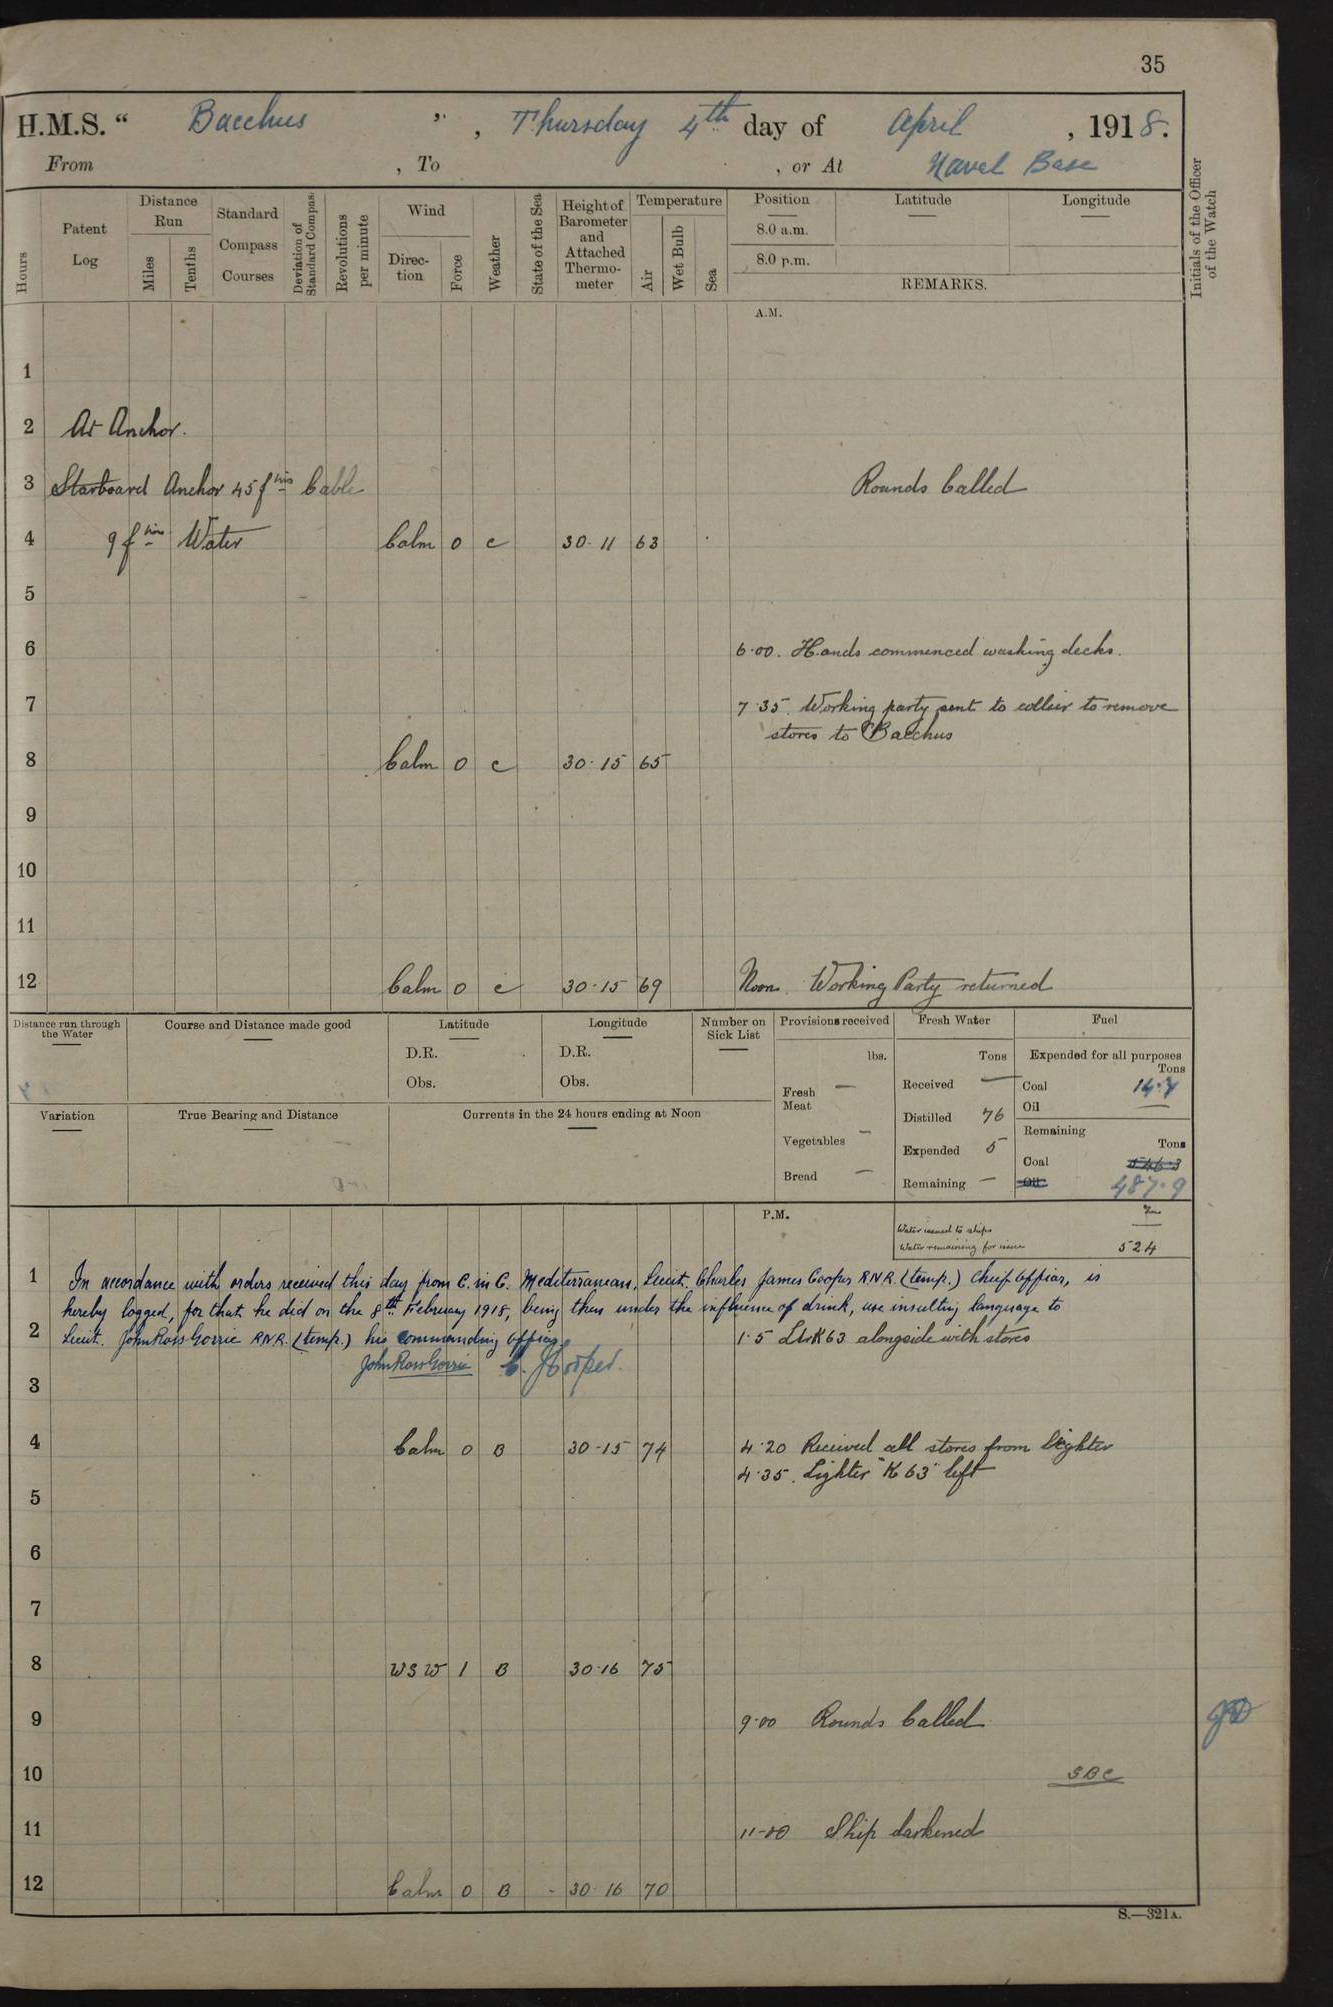 35
H.M.S. “ Bacchus ” , Thursday 4th day of April , 1918.
From , To , or At Naval Base
Hours
Patent Log
Distance Run
Miles
Tenths
Standard Compass Courses
Deviation of Standard Compass
Revolutions per minute
Wind
Direction
Force
Weather
State of the Sea
Height of Barometer and Attached Thermometer
Temperature
Air
Wet Bulb
Sea
Position
8.0 a.m.
8.0 p.m.
Latitude
Longitude
REMARKS.
Initials of the Officer of the Watch
A.M.
1
2 At Anchor.
3 Starboard Anchor 45 fms Cable Rounds Called
4 9 fms Water Calm 0 c 30.11 63
5
6 6.00. Hands commenced washing decks.
7 7.35. Working party sent to collier to remove
stores to Bacchus
8 Calm 0 c 30.15 65
9
10
11
12 Calm 0 c 30.15 69 Noon. Working Party returned
Distance run through the Water
Course and Distance made good
Latitude
D.R.
Obs.
Longitude
D.R.
Obs.
Number on Sick List
Provisions received
lbs.
Fresh Meat —
Vegetables —
Bread —
Fresh Water
Tons
Received —
Distilled 76
Expended 5
Remaining —
Fuel
Expended for all purposes
Tons
Coal 14.7
Oil —
Remaining
Tons
Coal 546.3
Oil 487.9
Variation
True Bearing and Distance
Currents in the 24 hours ending at Noon
P.M.
Water issued to ships —
Water remaining for issue 524
1 In accordance with orders received this day from C. in C. Mediterranean, Lieut. Charles James Cooper RNR. (temp.) Chief Officer, is
hereby logged, for that he did on the 8th February 1918, being then under the influence of drink, use insulting language to
2 Lieut. John Ross Gorrie RNR. (temp.) his commanding officer. 1.5 Ltr K63 alongside with stores
John Ross Gorrie C. J Cooper.
3
4 Calm 0 B 30.15 74 4.20 Received all stores from Lighter
4.35. Lighter "K 63" left
5
6
7
8 WSW 1 B 30.16 75
9 9.00 Rounds Called
10 SBC
11 11-00 Ship darkened
12 Calm 0 B - 30.16 70
S.—321A.